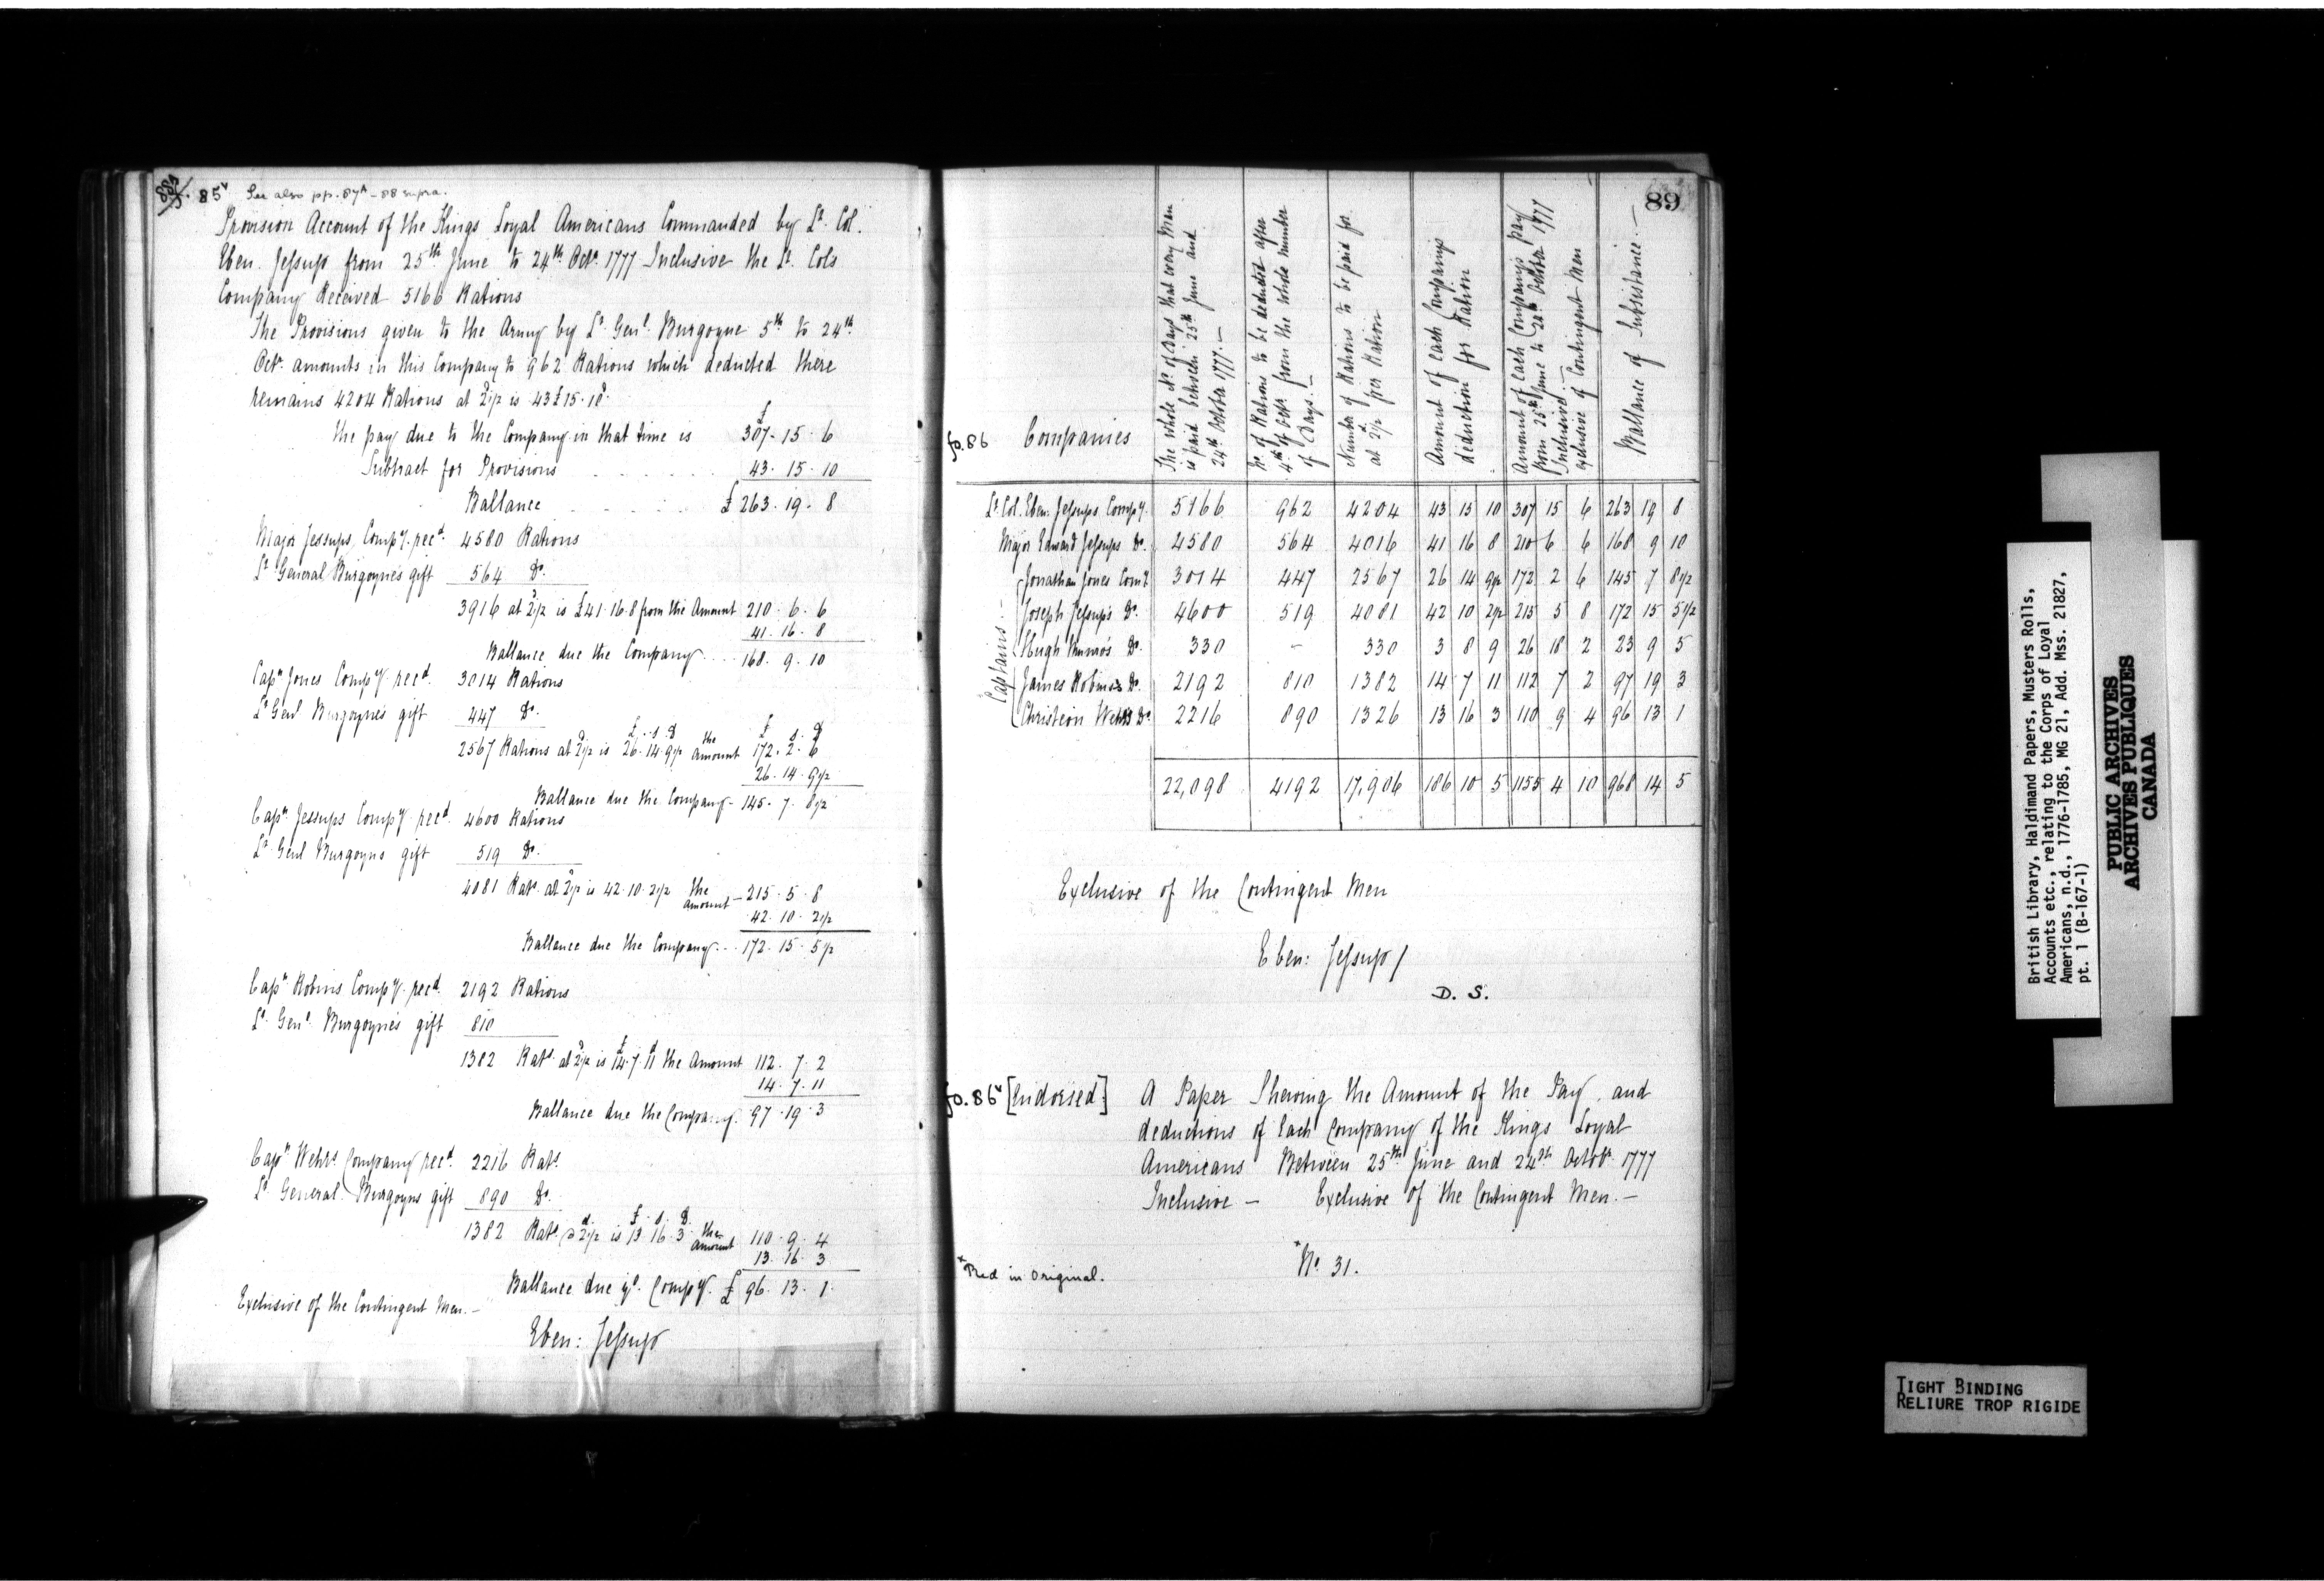 88A 85v See also pp. 87A - 88 supra.
Provision Account of the Kings Loyal Americans Commanded by Lt. Col.
Eben. Jessup from 25th June to 24th Octr. 1777 Inclusive the Lt. Cols
Company Received 5166 Rations
The Provisions given to the Army by Lt. Genl. Burgoyne 5th to 24th
Octr. amounts in this Company to 962 Rations which deducted there
remains 4204 Rations at 2½d is 43£15.10
The pay due to the Company in that time is £307-15-6
Subtract for Provisions 43. 15. 10
Ballance £ 263. 19. 8
Major Jessups Compy. recd. 4580 Rations
Lt General Burgoyne's gift 564 Do.
3916 at 2½d is £41.16.8 from the Amount 210. 6. 6
41. 16. 8
Ballance due the Company 168. 9. 10
Capn Jones Compy. recd. 3014 Rations
Lt Genl Burgoyne's gift 447 Do.
2567 Rations at 2½d is £26.s14.d9½ the Amount £172. s2. d6
26. 14. 9½
Ballance due the Company - 145. 7. 8½
Capn. Jessups Compy. recd. 4600 Rations
Lt. Genl Burgoyns gift 519 Do.
4081 Rats. at 2½d is 42.10.2½ the amount - 215. 5. 8
42. 10. 2½
Ballance due the Company 172. 15. 5½
Capn Robins Compy. recd. 2192 Rations
Lt. Genl. Burgoyne's gift 810
1382 Rats. at 2½d is £14.7.d11 the Amount 112. 7. 2
14. 7. 11
Ballance due the Company. 97. 19. 3
Capn Wehrs Company recd. 2216 Rats.
Lt. General Burgoyns gift 890 Do.
1382 Rats. @ 2½d is £13 s16 d3 the Amount 110. 9. 4
13. 16. 3
Ballance due ye. Compy. £ 96. 13. 1.
Exclusive of the Contingent Men. -
Eben: Jessup
89
fo. 86 Companies
The whole No. of Days that every Man
is paid between 25th June and
24th October 1777. -
No. of Rations to be deducted after
4th of Octr. from the whole number
of Days. -
Number of Rations to be paid for
at 2½d per Ration
Amount of each Companys
deduction for Ration
Amount of each Companys pay
from 25th June to 24th October 1777
Inclusive
exclusive of Contingent Men
Ballance of Subsistance. -
Lt. Col. Eben. Jessups Compy. 5166 962 4204 43 15 10 307 15 6 263 19 8
Major Edward Jessups Do. 4580 564 4016 41 16 8 210 6 6 168 9 10
Captains.
Jonathan Jones Comy. 3014 447 2567 26 14 9½ 172 2 6 145 7 8½
Joseph Jessups Do. 4600 519 4081 42 10 2½ 215 5 8 172 15 5½
Hugh Munro's Do. 330 - 330 3 8 9 26 18 2 23 9 5
James Robins's Do. 2192 810 1382 14 7 11 112 7 2 97 19 3
Christein Wehrs Do. 2216 890 1326 13 16 3 110 9 4 96 13 1
22,098 4192 17,906 186 10 5 1155 4 10 968 14 5
Exclusive of the Contingent Men
Eben: Jessup /
D. S.
fo. 86v [Endorsed.] A Paper Shewing the Amount of the Pay and
deductions of Each Company of the Kings Loyal
Americans Between 25th June and 24th Octobr. 1777
Inclusive - Exclusive of the Contingent Men. -
x No. 31.
x Red in Original.
British Library, Haldimand Papers, Musters Rolls,
Accounts etc., relating to the Corps of Loyal
Americans, n.d., 1776-1785, MG 21, Add. Mss. 21827,
pt. 1 (B-167-1)
PUBLIC ARCHIVES
ARCHIVES PUBLIQUES
CANADA
TIGHT BINDING
RELIURE TROP RIGIDE